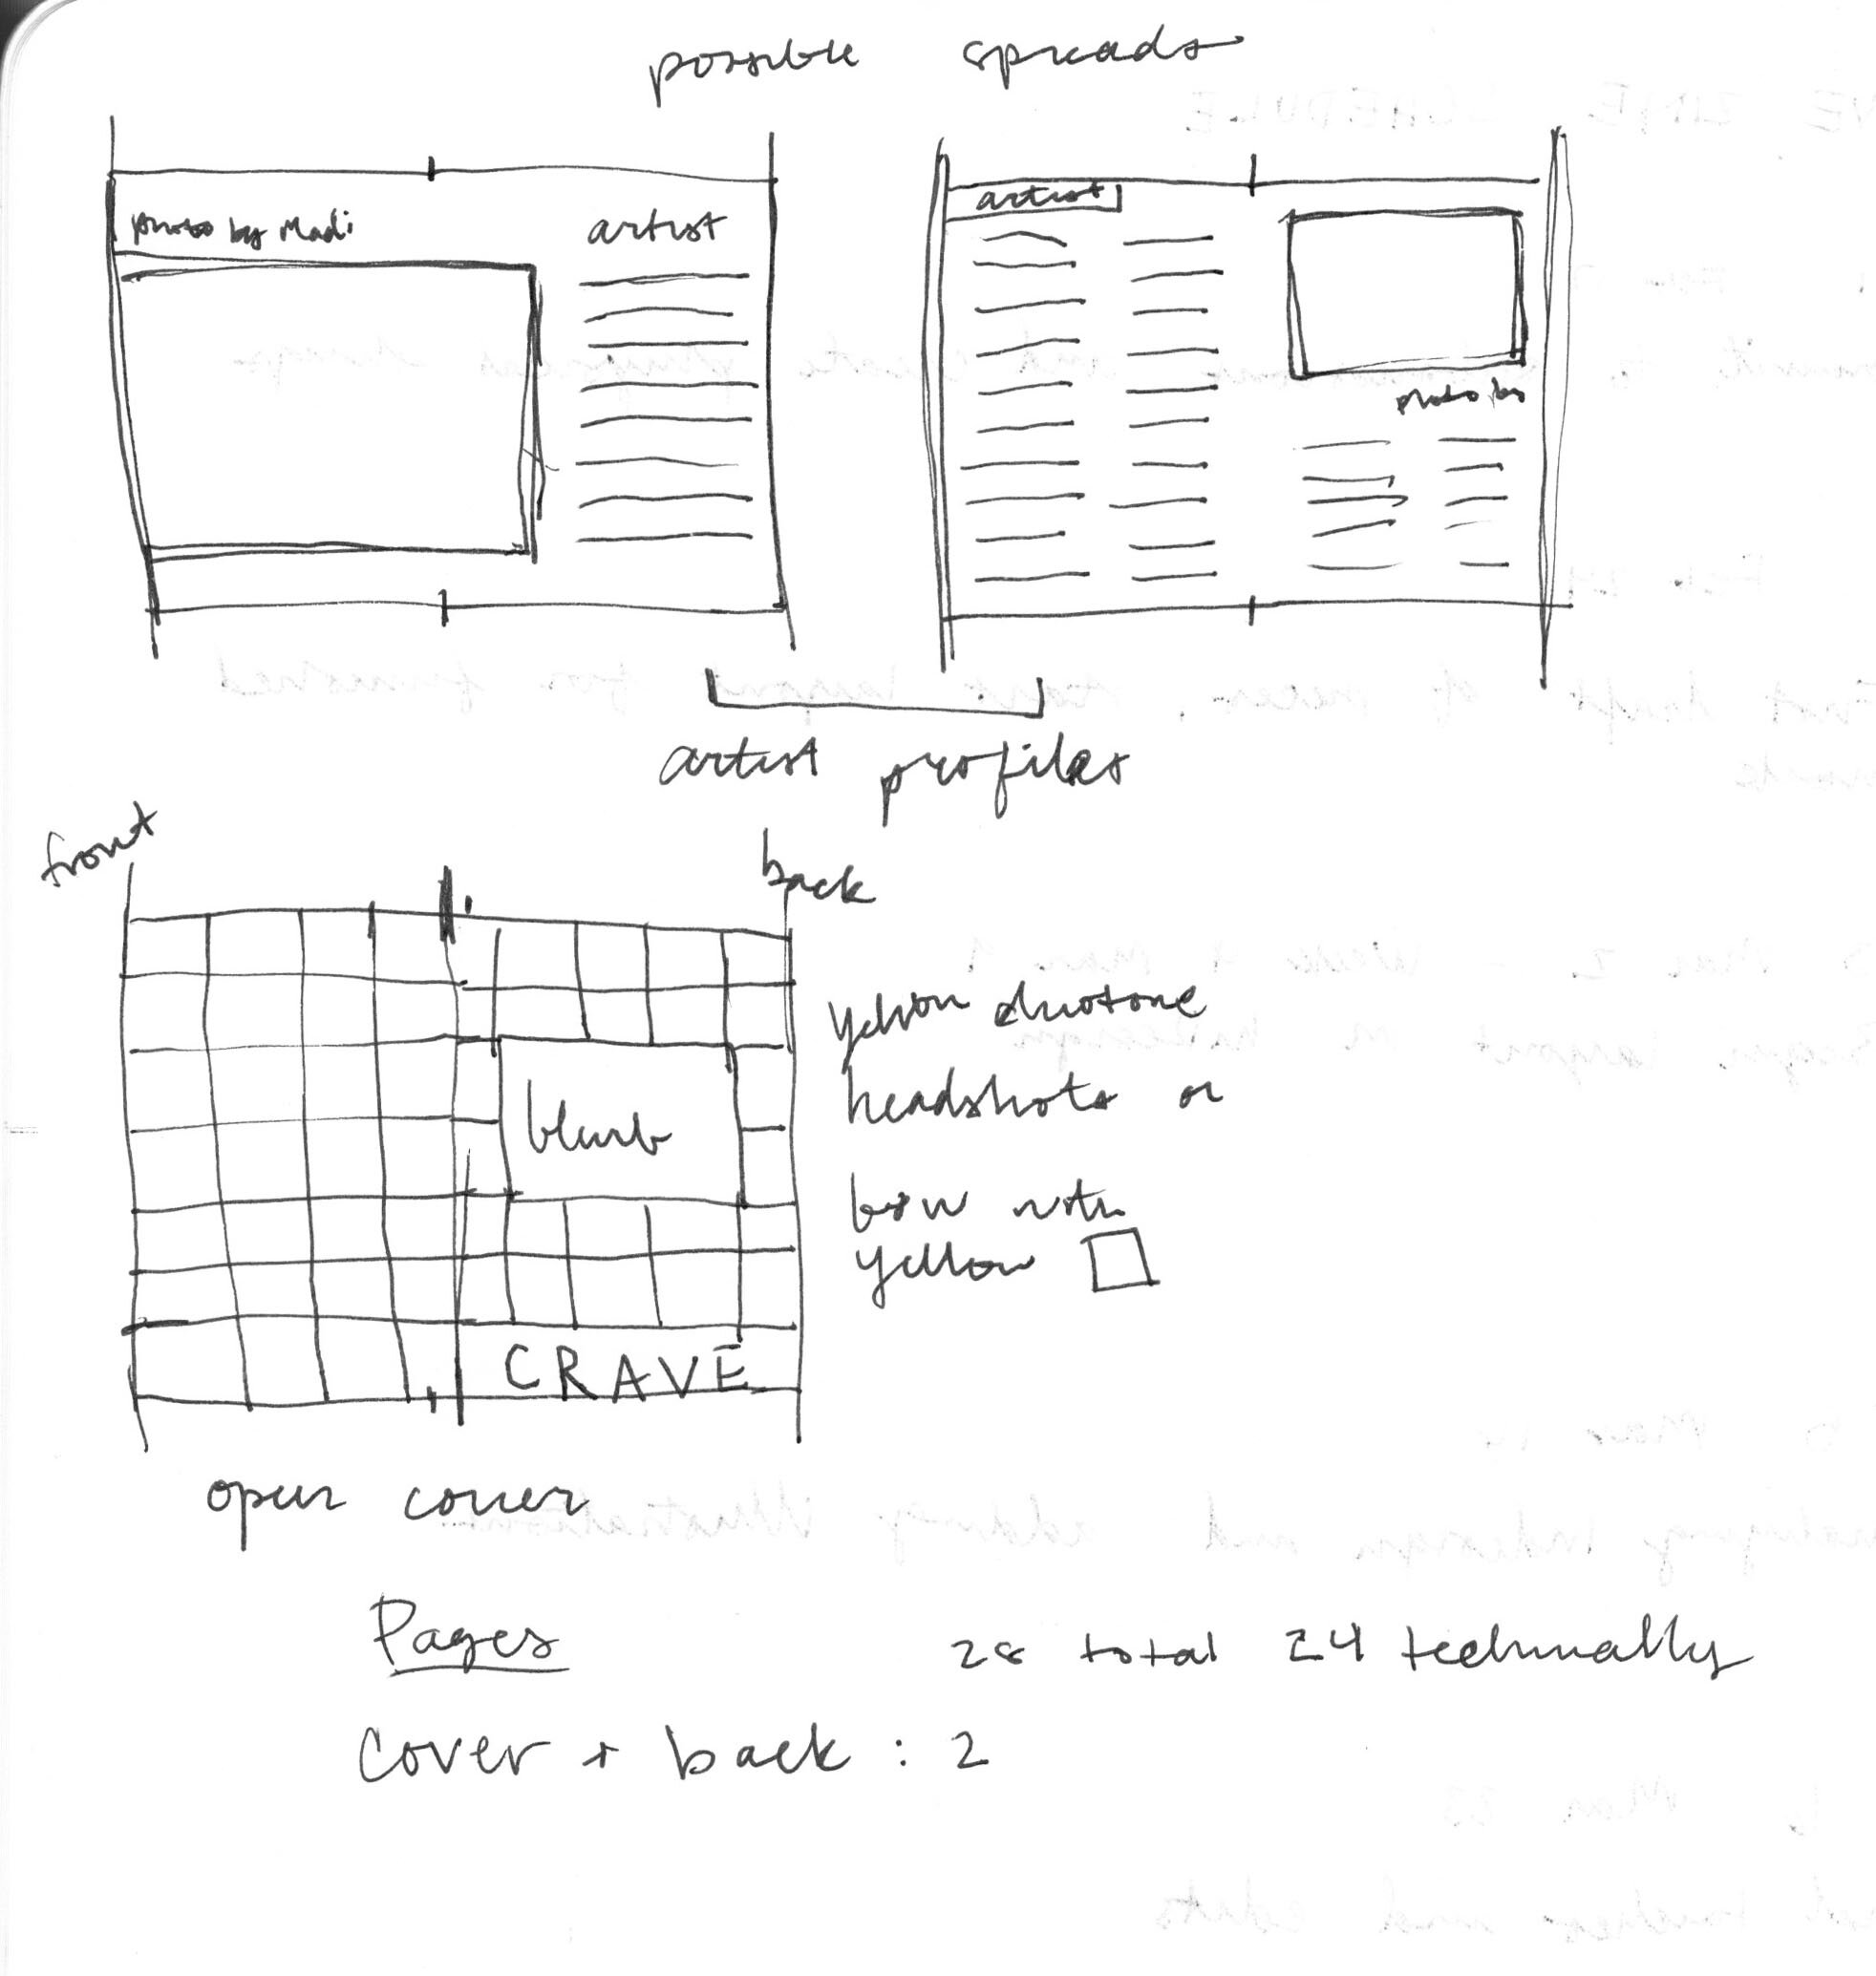 possible spreads
photo by Madi
artist
artist
photo by
artist profiles
front
back
yellow duotone
headshots or
b&w with
yellow
blurb
CRAVE
open cover
Pages
28 total 24 technically
cover + back : 2